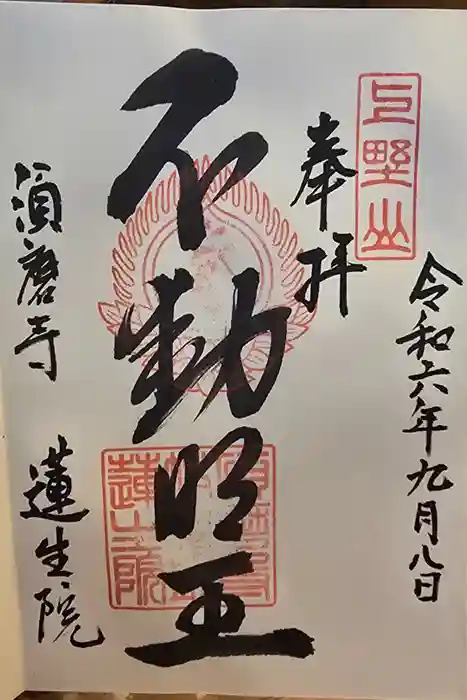 令和六年九月八日
上野山
奉拝
不動明王
須磨寺 蓮生院